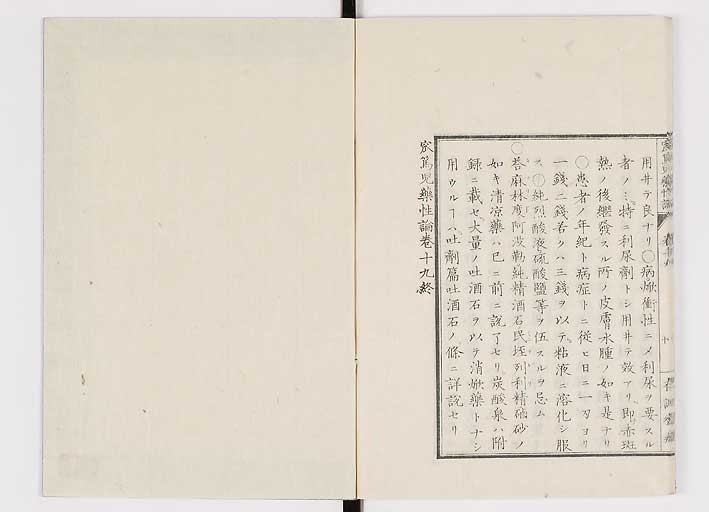 用井テ良ナリ〇病焮衝性ニメ利尿ヲ要スル
者ノミ特ニ利尿劑トシ用井テ效アリ即赤斑
熱ノ後繼發スル所ノ皮膚水腫ノ如キ是ナリ
〇患者ノ年紀ト病症トニ從ヒ日ニ一刃ヨリ
一錢二錢若クハ三錢ヲ以テ粘液ニ溶化シ服
ス〇純烈酸液硫酸鹽等ヲ伍スルヲ忌ム
〇荅麻林度阿波勒純精酒石民垤列利精硇砂ノ
如キ清凉藥ハ已ニ前ニ說了セリ炭酸泉ハ附
錄ニ載セ大量ノ吐酒石ヲ以テ消焮藥トナシ
用ウルヿハ吐劑篇吐酒石ノ條ニ詳說セリ
窊篤兒藥性論卷十九終